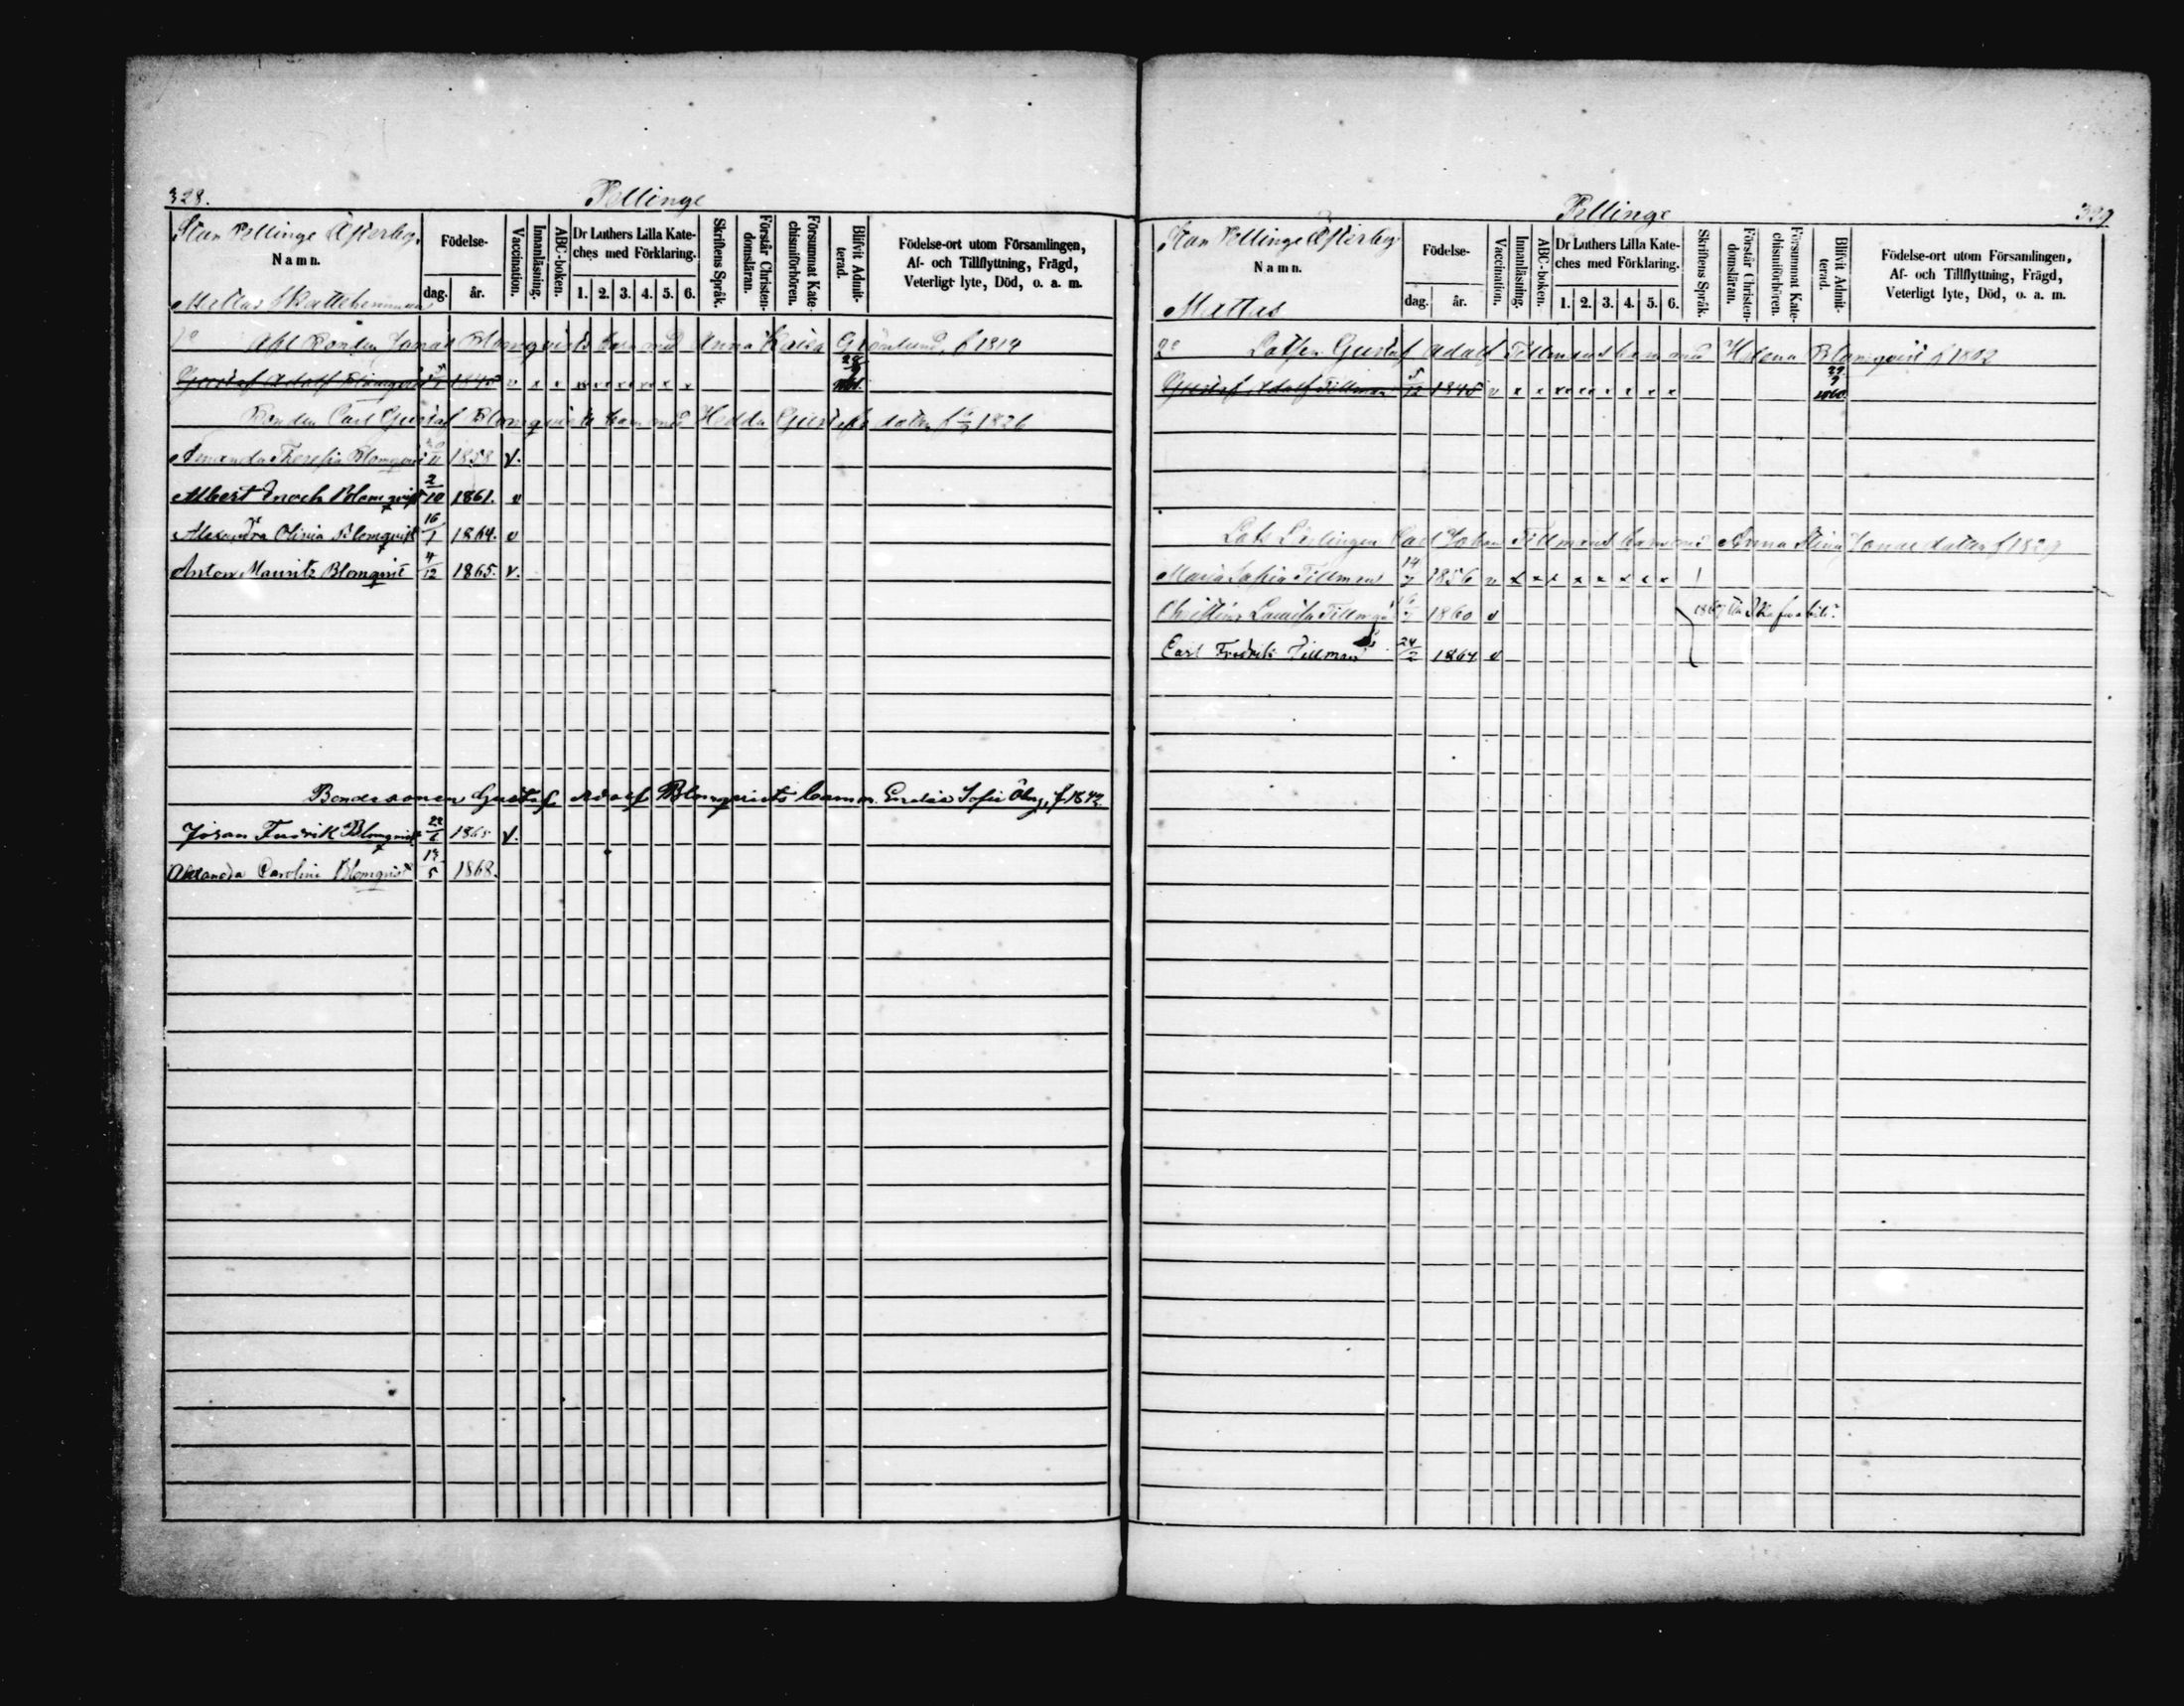 328.
Pellinge
Stor Pellinge Österby.
Namn.
Mattas Skattehemman
Födelse-
dag. år.
Vaccination.
Innanläsning.
ABC-boken.
Dr Luthers Lilla Kate-
ches med Förklaring.
1. 2. 3. 4. 5. 6.
Skriftens Språk.
Förstår Christen-
domsläran.
Försummat Kate-
chismiförhören.
Blifvit Admit-
terad.
Födelse-ort utom Församlingen,
Af- och Tillflyttning, Frägd,
Veterligt lyte, Död, o. a. m.
Bonden Jonas Blomqvists barn med Anna Kaisa Grönlund, f 1819
Gustaf Adolf Blomqvist 1845 v x x x x x x x x
Bonden Carl Gustaf Blomqvists barn med Hedda Gustafsdotter f 1826
Amanda Theresia Blomqvist 1858 v.
Albert Enoch Blomqvist 2/10 1861. v
Alexandra Olivia Blomqvist 16/1 1864. v
Anton Mauritz Blomqvist 4/12 1865. v.
Bondesonen Gustaf Adolf Blomqvists barn m. Sofia Öberg, f. 1842
Johan Fredrik Blomqvist 22/6 1865 v.
Carolina Blomqvist 5 1868.
Pellinge
329
Stor Pellinge Österby
Namn.
Mattas
Födelse-
dag. år.
Vaccination.
Innanläsning.
ABC-boken.
Dr Luthers Lilla Kate-
ches med Förklaring.
1. 2. 3. 4. 5. 6.
Skriftens Språk.
Förstår Christen-
domsläran.
Försummat Kate-
chismiförhören.
Blifvit Admit-
terad.
Födelse-ort utom Församlingen,
Af- och Tillflyttning, Frägd,
Veterligt lyte, Död, o. a. m.
2o Lotsen Gustaf Adolf Tillmans barn med Helena Blomqvist f 1802
Gustaf Adolf Tillman 5/12 1845 v x x x x x x x x
Lots Lärlingen Carl Johan Tillmans barn med Anna Stina Jonasdotter f 1829
Maria Sofia Tillman 14/7 1856 v x x x x x x x x
Christina Lovisa Tillman 1860 v
Carl Fredrik Tillman 24/2 1864 v